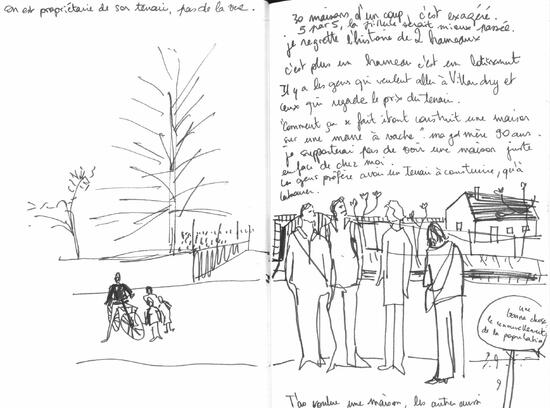 on est propriétaire de son terrain, pas de la vue.
30 maisons d'un coup, c'est exagéré.
5 par 5, la pillule serait mieux passée.
je regrette l'histoire de 2 hameaux
c'est plus un hameau c'est un lotissement
Il y a les gens qui veulent aller à Villandry et
ceux qui regarde le prix du terrain.
"Comment ça se fait ils ont construit une maison
sur une mare à vache" ma gd mère 90 ans.
je supporterai pas de voir une maison juste
en face de chez moi.
Les gens préfère avoir un terrain à construire, qu'à
labourer.
une
bonne chose
le renouvellement
de la population
T'as voulu une maison, les autres aussi